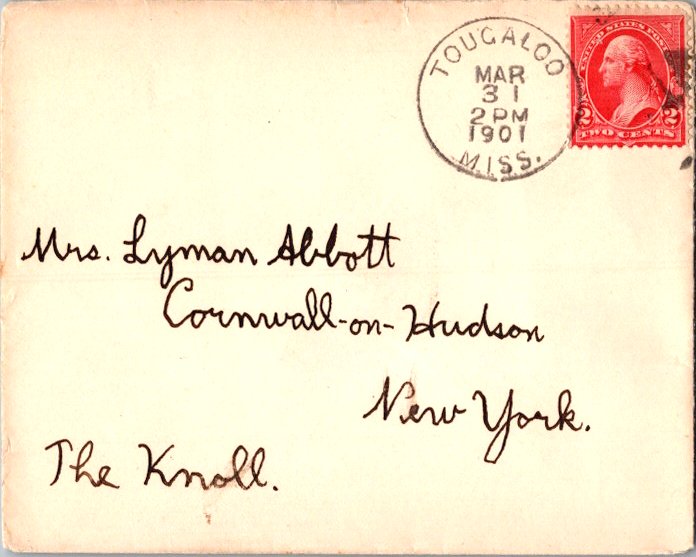 TOUGALOO
MAR
31
2 PM
1901
MISS.
UNITED STATES POSTAGE
2 2
TWO CENTS
Mrs. Lyman Abbott
Cornwall-on-Hudson
New York.
The Knoll.